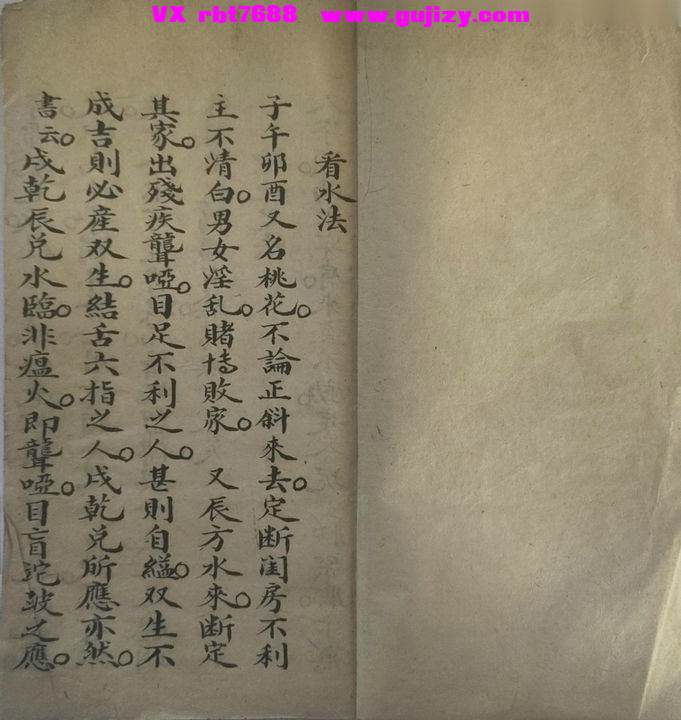 VX rbt7688 www.gujizy.com
看水法
子午卯酉又名桃花。不論正斜來去。定断闺房不利
主不清白。男女淫乱。賭博敗家。又辰方水來。断定
其家。出殘疾聾啞。目足不利之人。甚則自縊。双生不
成吉則必産双生。結舌六指之人。戌乾兑所應亦然。
書云。戌乾辰兑水臨。非瘟火。即聾啞。目盲跎皷之應。